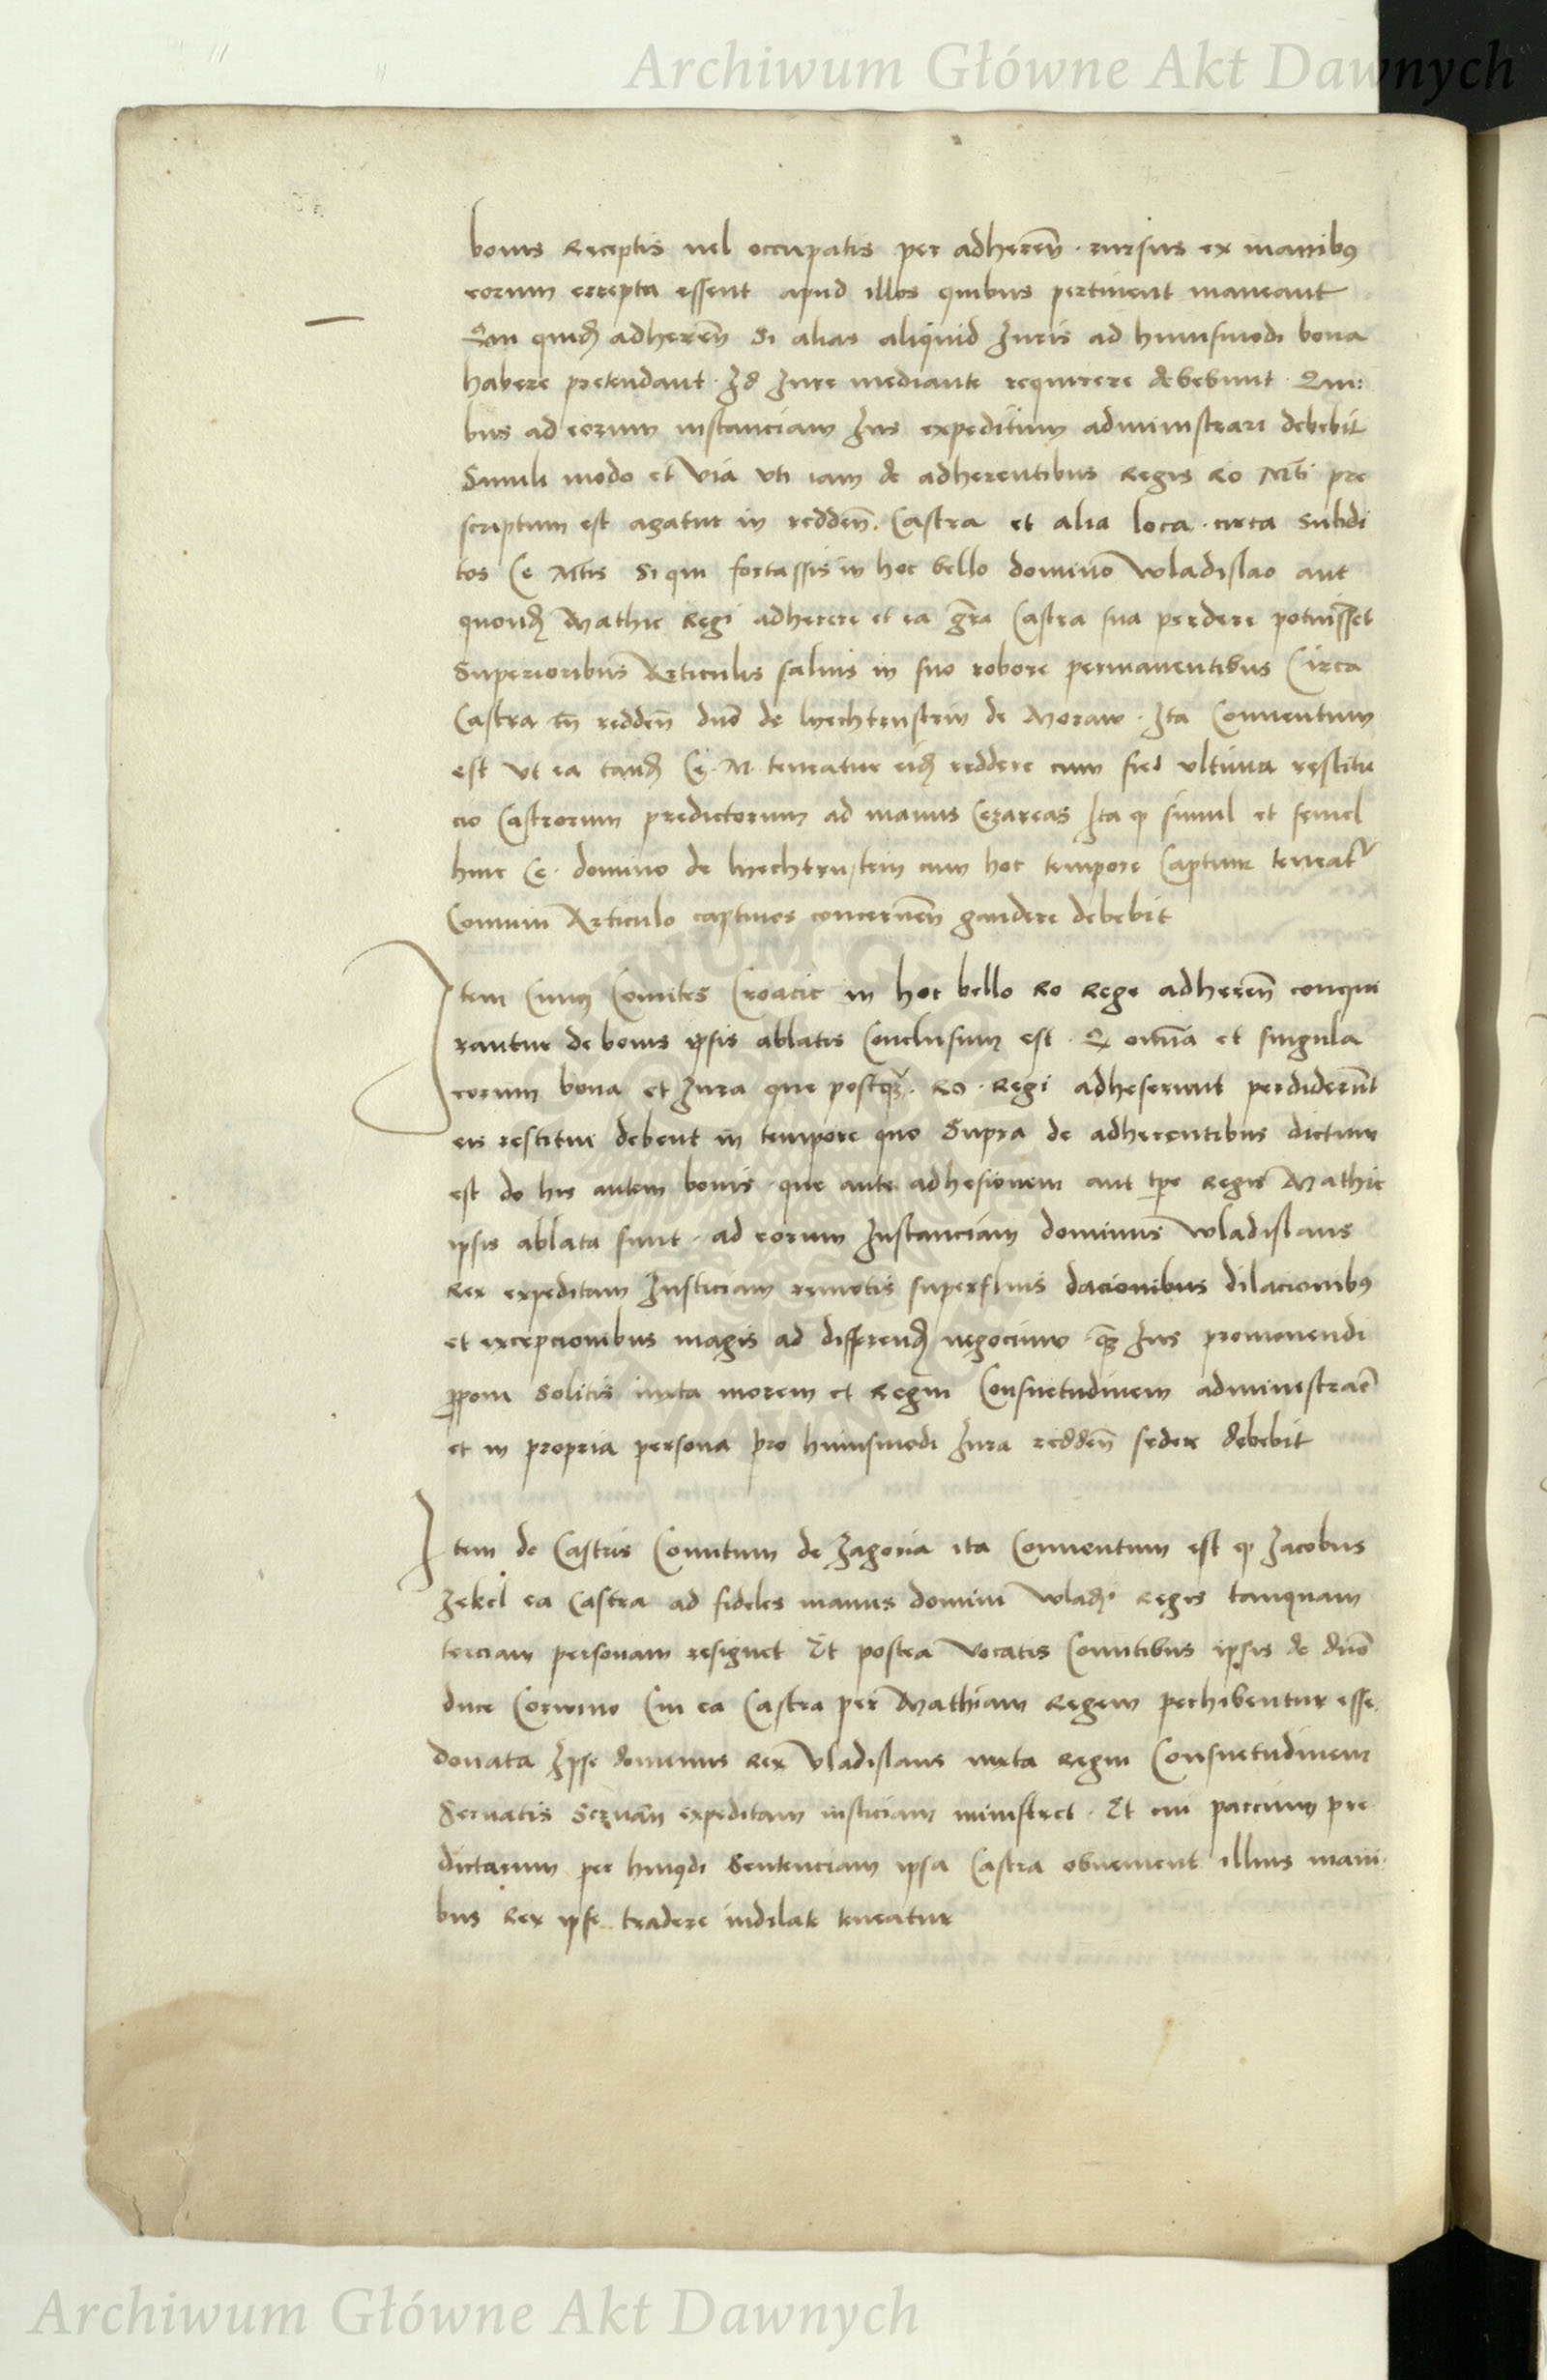 Archiwum Główne Akt Dawnych
bonis Receptis vel occupatis per adheren̄ · rursus ex manibꝯ
eorum errepta essent apud illos quibus pertinent maneant
Qui quidꝫ adheren̄ Si alias aliquid Juris ad huiusmodi bona
habere pretendant · Id Jure mediante requirere debebunt · Qui:
bus ad eorum instanciam Jus expeditum administrari debebit
Simili modo et via vti iam de adherentibus Regis Ro Mti pre
scriptum est agatur in redden̄. Castra et alia loca · circa Subdi
tos Ce Mtis Si qui fortassis in hoc bello domino Wladislao aut
quondꝫ Mathie Regi adherere et ea gr̄a Castra sua perdere potuissēt
Superioribus Articulis saluis in suo robore permanentibus Circa
Castra tn̄ redden̄ dn̄o de Liechtenstein de Moraw · Ita Conuentum
est vt ea tandꝫ Ce · M · teneatur eidꝫ reddere cum fiet vltima restitu
cio Castrorum predictorum ad manus Cezareas Ita ꝙ simul et semel
hinc Ce · domino de Liechtenstein cum hoc tempore Captiuus teneatr
Communi Articulo captiuos concernen̄ gaudere debebit
Item Cum Comites Croacie in hoc bello Ro Rege adheren̄ conque
rantur de bonis ipsis ablatis Conclusum est · Q om̄ia et singula
eorum bona et Jura que postqꝫ · Ro · Regi adheserunt perdiderūt
eis restitui debent in tempore quo Supra de adherentibus dictum
est de his autem bonis · que ante adhesionem aut tp̄e Regis Mathie
ipsis ablata sunt · ad eorum Instanciam dominus Wladislaus
Rex expeditam Justiciam remotis superfluis dacionibus dilacionibꝯ
et excepcionibus magis ad differendꝫ negocium qꝫ Jus promouendi
ꝓponi Solitis iuxta morem et Regni Consuetudinem administrare
et in propria persona pro huiusmodi Jura redden̄ sedere debebit
Item de Castris Comitum de Zagoria ita Conuentum est ꝙ Jacobus
Zekel ea Castra ad fideles manus domini Wladꝫ · Regis tanquam
terciam personam resignet Et postea Vocatis Comitibus ipsis de dn̄o
duce Coruino Cui ea Castra per Mathiam Regem perhibentur esse
donata Ipse dominus Rex Vladislaus iuxta Regni Consuetudinem
Seruatis Seruan̄ expeditam iusticiam ministret · Et cui parcium pre
dictarum per huiꝯdi Sentenciam ipsa Castra obuenient illius mani
bus Rex ipse tradere indilate teneatur
Archiwum Główne Akt Dawnych